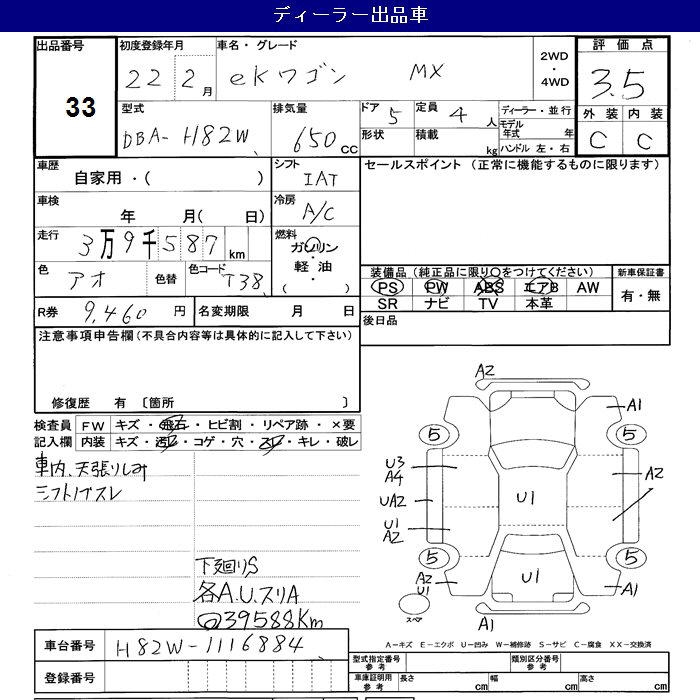 ディーラー出品車
出品番号
33
初度登録年月
22 2月
車名・グレード
eKワゴン MX
2WD
・
4WD
評価点
3.5
外装 内装
C C
型式
DBA-H82W
排気量
650cc
ドア 5
定員 4人
形状
積載 kg
ディーラー・並行
モデル年式 年
ハンドル 左・右
車歴
自家用・( )
シフト
IAT
セールスポイント (正常に機能するものに限ります)
車検
年 月( 日)
冷房
A/C
走行
3万9千587km
燃料
ガソリン
軽油
( ・ )
色
アオ
色替
色コード
T38
装備品 (純正品に限り○をつけてください)
PS PW ABS エアB AW
SR ナビ TV 本革
新車保証書
有・無
R券 9,460円
名変期限 月 日
後日品
注意事項申告欄(不具合内容等は具体的に記入して下さい)
修復歴 有 〔箇所 〕
検査員記入欄
FW キズ・飛石・ヒビ割・リペア跡・×要
内装 キズ・汚レ・コゲ・穴・スレ・キレ・破レ
車内、天張りしみ
シフトノブスレ
下廻りS
各A.U.スリA
39588Km
A2
A1
5 5
U3
A4
A2
UA2
U1
U1
A2
5 5
A2
U1
U1
スペア
A1
A-キズ E-エクボ U-凹み W-補修跡 S-サビ C-腐食 XX-交換済
車台番号
H82W-1116884
登録番号
型式指定番号 参考
類別区分番号 参考
車庫証明用 参考
長さ cm
幅 cm
高さ cm